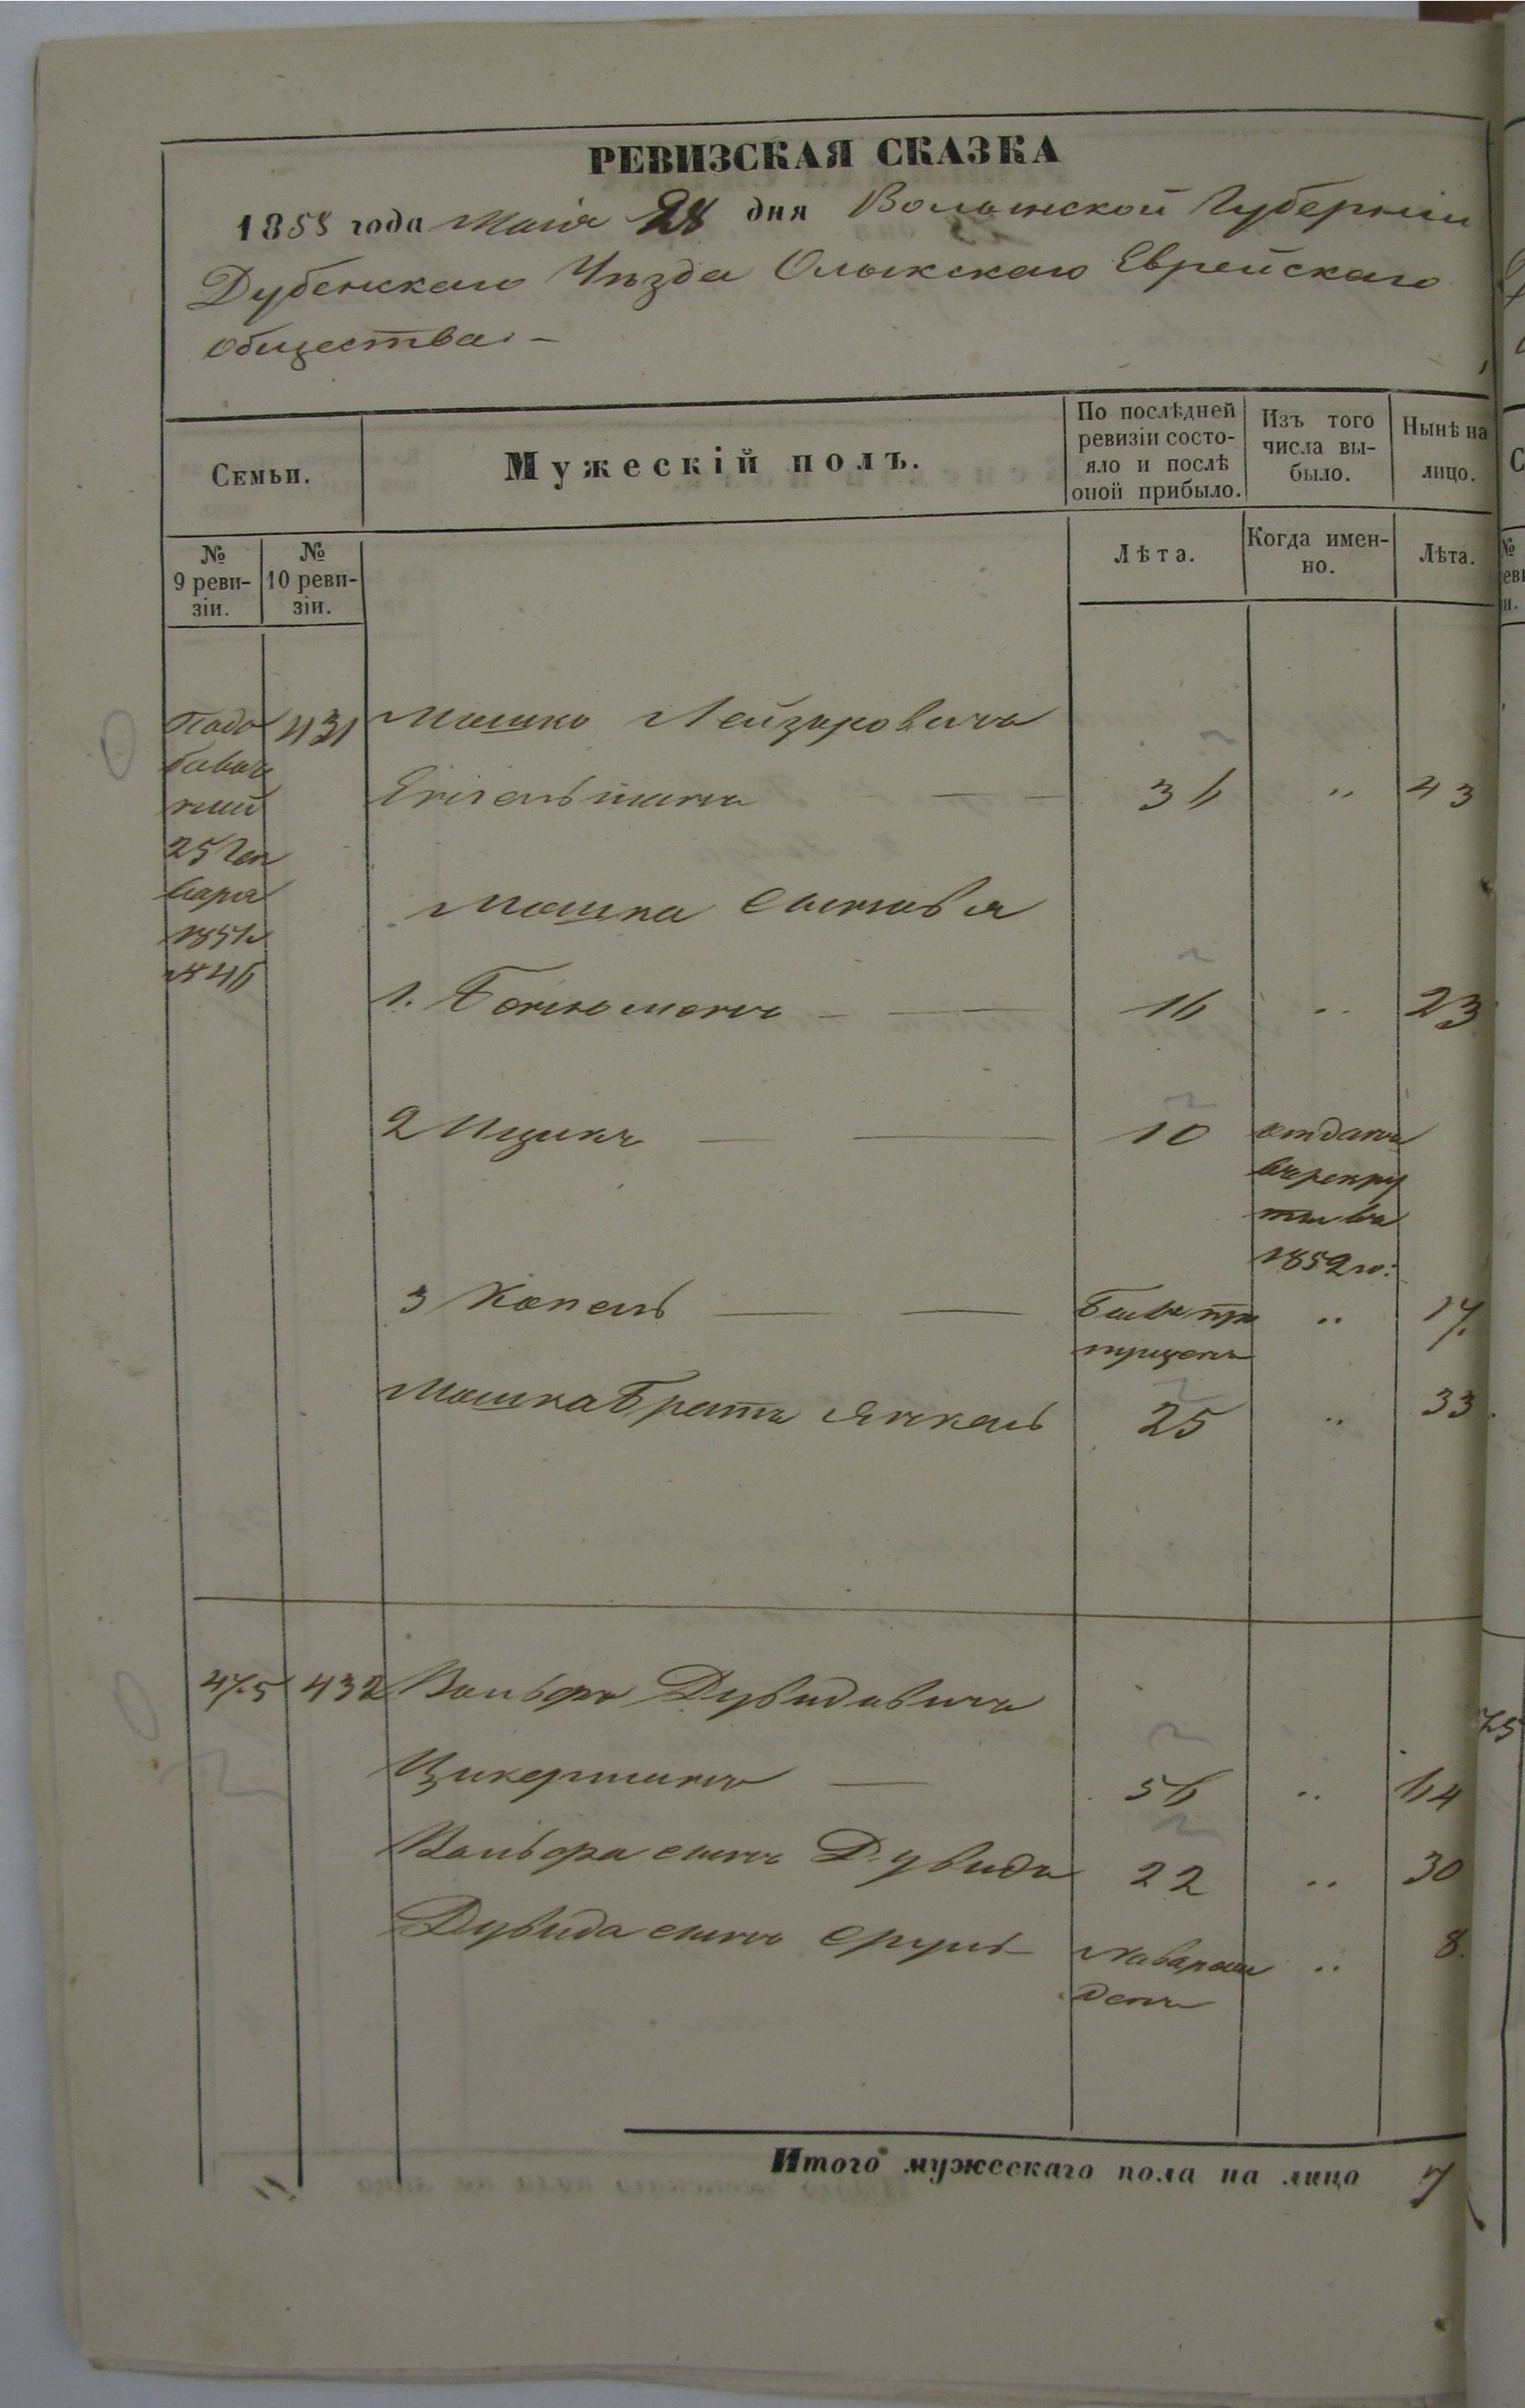 РЕВИЗСКАЯ СКАЗКА
1858 года Маія 28 дня Волынской Губерніи
Дубенскаго Уѣзда Олыкскаго Еврейскаго
общества. –
Семьи.
Мужескій полъ.
По послѣдней ревизіи состо-
яло и послѣ оной прибыло.
Изъ того числа вы-
было.
Нынѣ на лицо.
№ 9 реви-
зіи.
№ 10 реви-
зіи.
Лѣта.
Когда имен-
но.
Лѣта.
431 Мошко Лейзеровичъ
36 " 43
25 Ген
варя
1851
№ 46
Мошка сыновья
1. Бенюменъ 16 " 23
2 Ицикъ 10 отданъ
въ рекру
ты въ
1852 го:
3 Копель Былъ про " 17.
пущенъ
Мошка братъ Янкель 25 " 33.
475 432 Вольфъ Дувидовичъ
Цикерманъ 56 " 64
Вольфа сынъ Дувидъ 22 " 30
Дувида сынъ Сруль новорож " 8.
денъ
Итого мужескаго пола на лицо 7